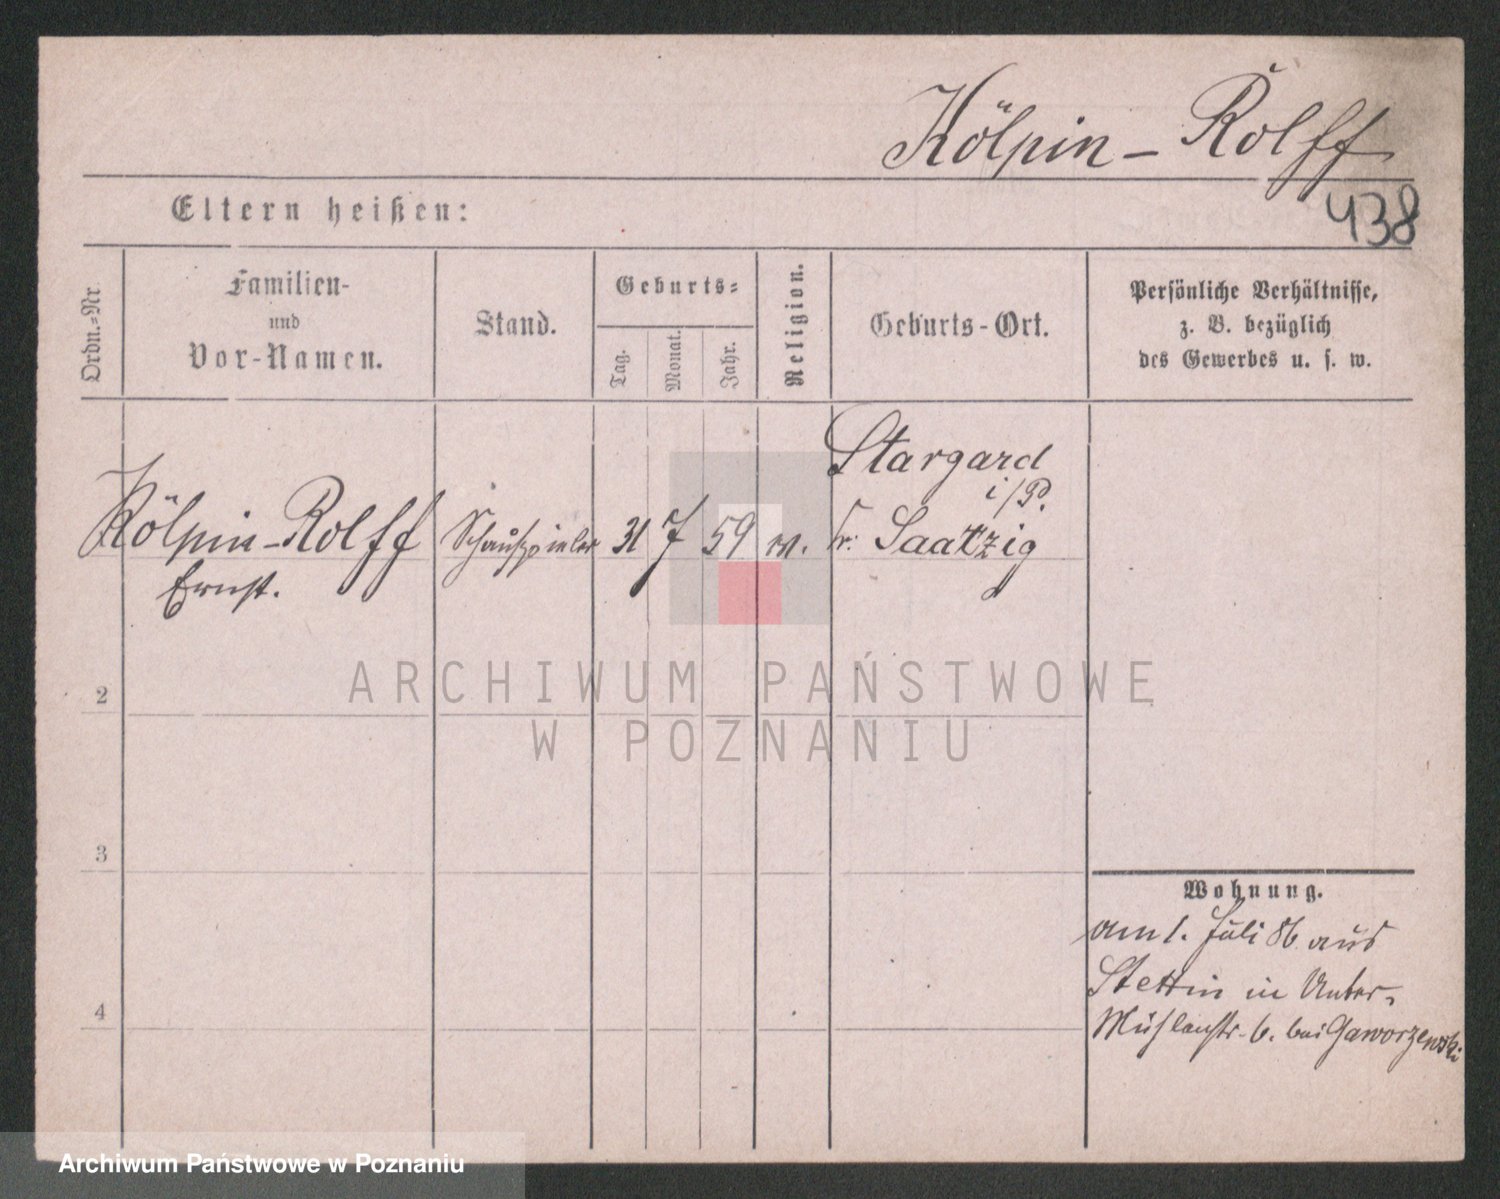 Kölpin - Rolff
438
Eltern heißen:
Ordn.=Nr.
Familien-
und
Vor-Namen.
Stand.
Geburts=
Tag.
Monat.
Jahr.
Religion.
Geburts-Ort.
Persönliche Verhältnisse,
z. B. bezüglich
des Gewerbes u. s. w.
Kölpin-Rolff
Ernst.
Schauspieler
31
7
59
Stargard
i/P.
Kr. Saatzig
2
3
4
Wohnung.
am 1. Juli 86 aus
Stettin in Unter-
Mühlenstr. 6. bei Gaworzewski
ARCHIWUM PAŃSTWOWE
W POZNANIU
Archiwum Państwowe w Poznaniu